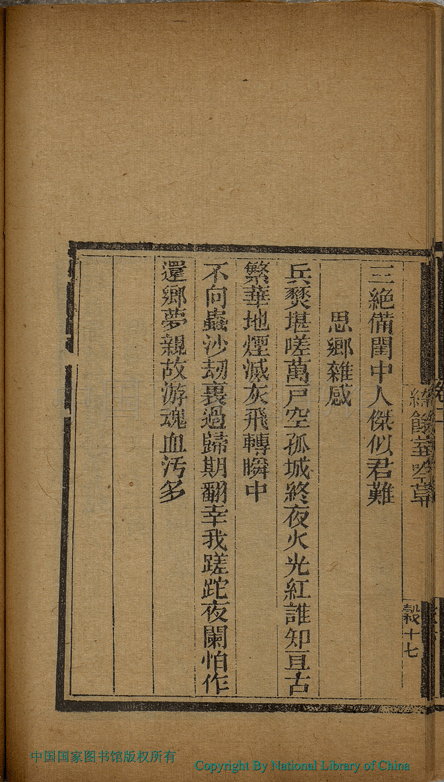 餘室吟草
十七
三絕備閨中人傑似君難
思鄉雜感
兵燹堪嗟萬戶空孤城終夜火光紅誰知亘古
繁華地煙滅灰飛轉瞬中
不向蟲沙劫裏過歸期翻幸我蹉跎夜闌怕作
還鄉夢親故游魂血污多
中国国家图书馆版权所有
Copyright By National Library of China